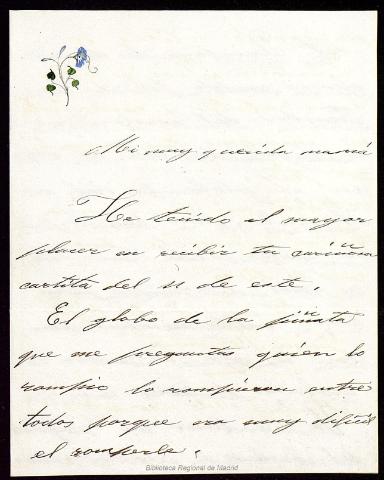 Mi muy querida mamá
He tenido el mayor
placer en recibir tu cariñosa
cartita del 11 de este.
El globo de la piñata
que me preguntas quien lo
rompio lo rompieron entre
todos porque no muy dificil
el romperle.
Biblioteca Regional de Madrid